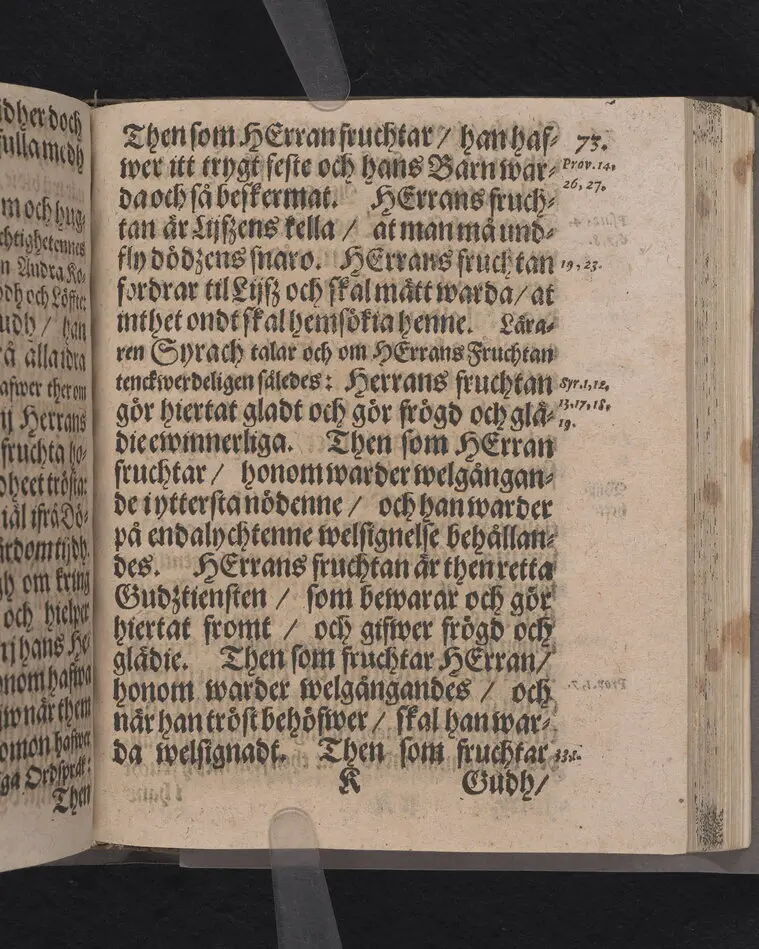 dher doch
fulla medh
m och hug-
chtighetennes
n Andra Ko-
och Löffter
udh / han
rå alla idra
afwer ther om
ij Herrans
fruchta ho-
heet trösta:
iäl ifrå Dö-
ärdom tijdh
gh om kring
och hielper
nj hans He
nom hafwa
iw när them
omon hafwer
ga Ordspråk:
Then
Then som HErran fruchtar / han haf- 73.
wer itt trygt feste och hans Barn war- Prov. 14.
da och så beskermat. HErrans fruch- 26, 27.
tan är Lijfzens kella / at man må und-
fly dödzens snaro. HErrans fruchtan 19, 23.
fordrar til Lijfz och skal mätt warda / at
inthet ondt skal hemsökia henne. Lära-
ren Syrach talar och om HErrans Fruchtan
tenckwerdeligen således: Herrans fruchtan Syr. 1, 12,
gör hiertat gladt och gör frögd och glä- 13, 17, 18,
die ewinnerliga. Then som HErran 19.
fruchtar / honom warder welgångan-
de i yttersta nödenne / och han warder
på endalychtenne welsignelse behållan-
des. HErrans fruchtan är then retta
Gudztiensten / som bewarar och gör
hiertat fromt / och gifwer frögd och
glädie. Then som fruchtar HErran /
honom warder welgångandes / och
när han tröst behöfwer / skal han war-
da welsignadt. Then som fruchtar
K Gudh /